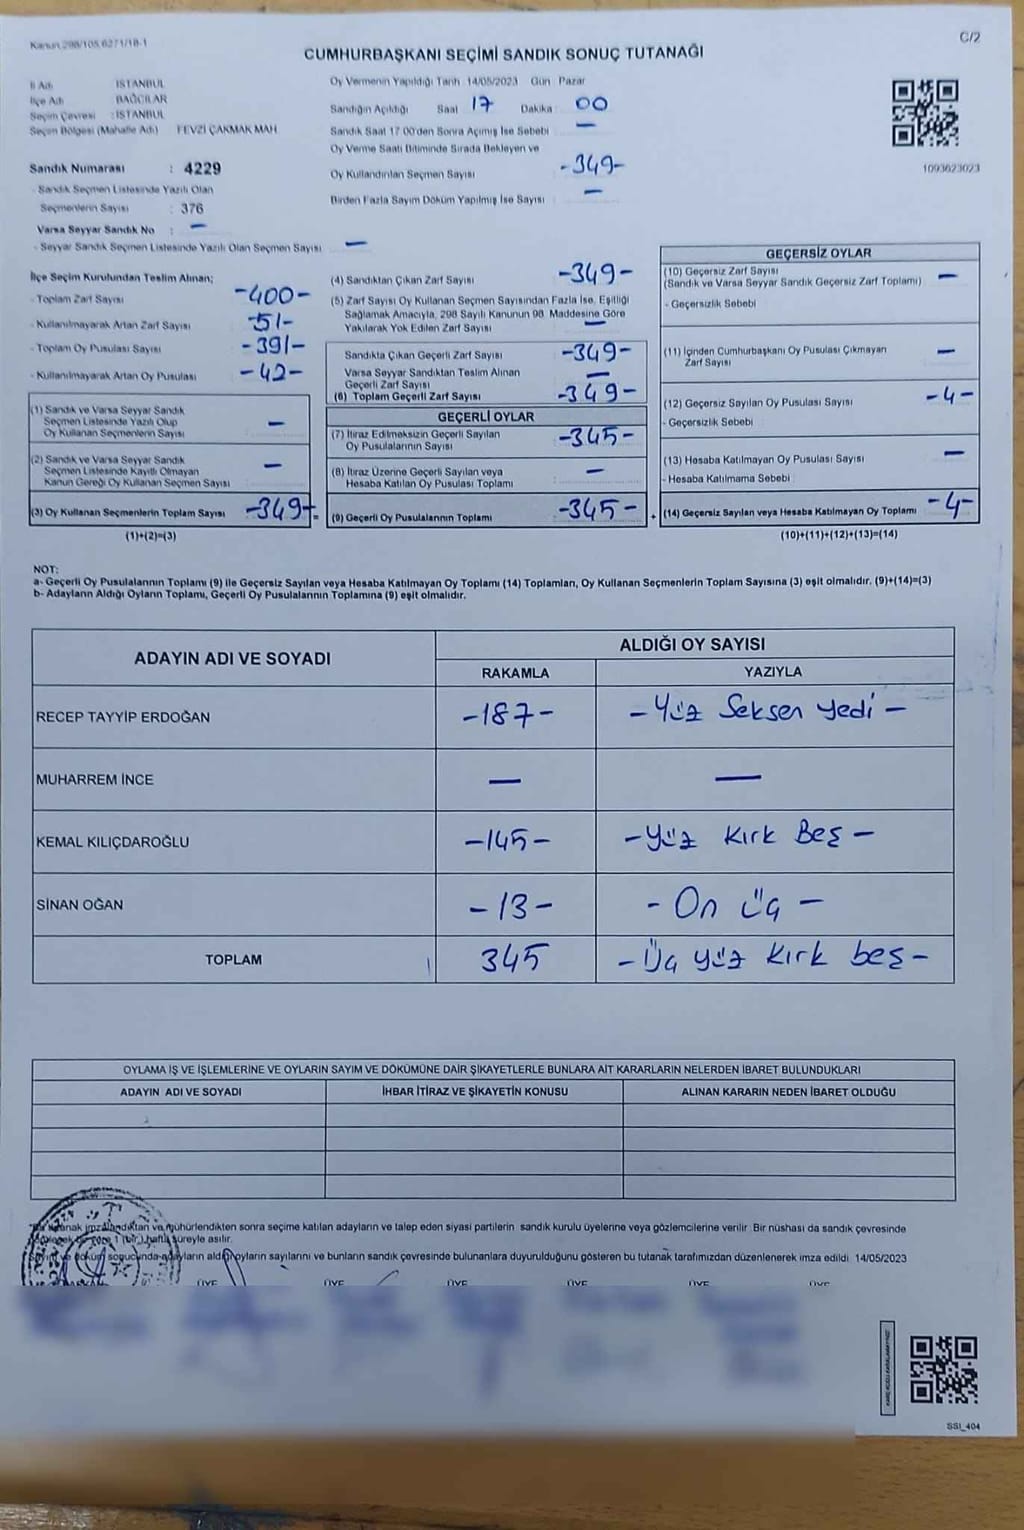 Kanun 298/105,6271/18-1
C/2
CUMHURBAŞKANI SEÇİMİ SANDIK SONUÇ TUTANAĞI
İl Adı İSTANBUL
İlçe Adı BAĞCILAR
Seçim Çevresi : İSTANBUL
Seçim Bölgesi (Mahalle Adı) FEVZİ ÇAKMAK MAH.
Sandık Numarası : 4229
- Sandık Seçmen Listesinde Yazılı Olan
Seçmenlerin Sayısı : 376
Varsa Seyyar Sandık No : —
- Seyyar Sandık Seçmen Listesinde Yazılı Olan Seçmen Sayısı —
Oy Vermenin Yapıldığı Tarih 14/05/2023 Gün Pazar
Sandığın Açıldığı Saat 17 Dakika 00
Sandık Saat 17 00'den Sonra Açılmış İse Sebebi —
Oy Verme Saati Bitiminde Sırada Bekleyen ve
Oy Kullandırılan Seçmen Sayısı -349-
Birden Fazla Sayım Döküm Yapılmış İse Sayısı —
1093623023
İlçe Seçim Kurulundan Teslim Alınan;
- Toplam Zarf Sayısı -400-
- Kullanılmayarak Artan Zarf Sayısı -51-
- Toplam Oy Pusulası Sayısı -391-
- Kullanılmayarak Artan Oy Pusulası -42-
(1) Sandık ve Varsa Seyyar Sandık
Seçmen Listesinde Yazılı Olup
Oy Kullanan Seçmenlerin Sayısı —
(2) Sandık ve Varsa Seyyar Sandık
Seçmen Listesinde Kayıtlı Olmayan
Kanun Gereği Oy Kullanan Seçmen Sayısı —
(3) Oy Kullanan Seçmenlerin Toplam Sayısı -349-
(1)+(2)=(3)
(4) Sandıktan Çıkan Zarf Sayısı -349-
(5) Zarf Sayısı Oy Kullanan Seçmen Sayısından Fazla İse, Eşitliği
Sağlamak Amacıyla, 298 Sayılı Kanunun 98. Maddesine Göre
Yakılarak Yok Edilen Zarf Sayısı —
Sandıkta Çıkan Geçerli Zarf Sayısı -349-
Varsa Seyyar Sandıktan Teslim Alınan
Geçerli Zarf Sayısı —
(6) Toplam Geçerli Zarf Sayısı -349-
GEÇERLİ OYLAR
(7) İtiraz Edilmeksizin Geçerli Sayılan
Oy Pusulalarının Sayısı -345-
(8) İtiraz Üzerine Geçerli Sayılan veya
Hesaba Katılan Oy Pusulası Toplamı —
= (9) Geçerli Oy Pusulalarının Toplamı -345-
GEÇERSİZ OYLAR
(10) Geçersiz Zarf Sayısı —
(Sandık ve Varsa Seyyar Sandık Geçersiz Zarf Toplamı)
- Geçersizlik Sebebi
(11) İçinden Cumhurbaşkanı Oy Pusulası Çıkmayan
Zarf Sayısı —
(12) Geçersiz Sayılan Oy Pusulası Sayısı -4-
- Geçersizlik Sebebi
(13) Hesaba Katılmayan Oy Pusulası Sayısı —
- Hesaba Katılmama Sebebi
+ (14) Geçersiz Sayılan veya Hesaba Katılmayan Oy Toplamı -4-
(10)+(11)+(12)+(13)=(14)
NOT:
a- Geçerli Oy Pusulalarının Toplamı (9) ile Geçersiz Sayılan veya Hesaba Katılmayan Oy Toplamı (14) Toplamları, Oy Kullanan Seçmenlerin Toplam Sayısına (3) eşit olmalıdır. (9)+(14)=(3)
b- Adayların Aldığı Oyların Toplamı, Geçerli Oy Pusulalarının Toplamına (9) eşit olmalıdır.
ADAYIN ADI VE SOYADI ALDIĞI OY SAYISI
RAKAMLA YAZIYLA
RECEP TAYYİP ERDOĞAN -187- - Yüz Seksen Yedi -
MUHARREM İNCE — —
KEMAL KILIÇDAROĞLU -145- - Yüz Kırk Beş -
SİNAN OĞAN -13- - On Üç -
TOPLAM 345 - Üç yüz Kırk beş -
OYLAMA İŞ VE İŞLEMLERİNE VE OYLARIN SAYIM VE DÖKÜMÜNE DAİR ŞİKAYETLERLE BUNLARA AİT KARARLARIN NELERDEN İBARET BULUNDUKLARI
ADAYIN ADI VE SOYADI İHBAR İTİRAZ VE ŞİKAYETİN KONUSU ALINAN KARARIN NEDEN İBARET OLDUĞU
imzalandıktan ve mühürlendikten sonra seçime katılan adayların ve talep eden siyasi partilerin sandık kurulu üyelerine veya gözlemcilerine verilir. Bir nüshası da sandık çevresinde
1 (bir) hafta süreyle asılır.
döküm sonucunda adayların aldığı oyların sayılarını ve bunların sandık çevresinde bulunanlara duyurulduğunu gösteren bu tutanak tarafımızdan düzenlenerek imza edildi 14/05/2023
ÜYE ÜYE ÜYE ÜYE ÜYE ÜYE
SSI_404